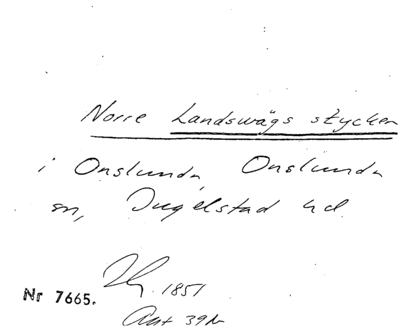 Norre Landswägs stycken
i Onslunda, Onslunda
sn, Ingelstad hd
1851
Nr 7665.